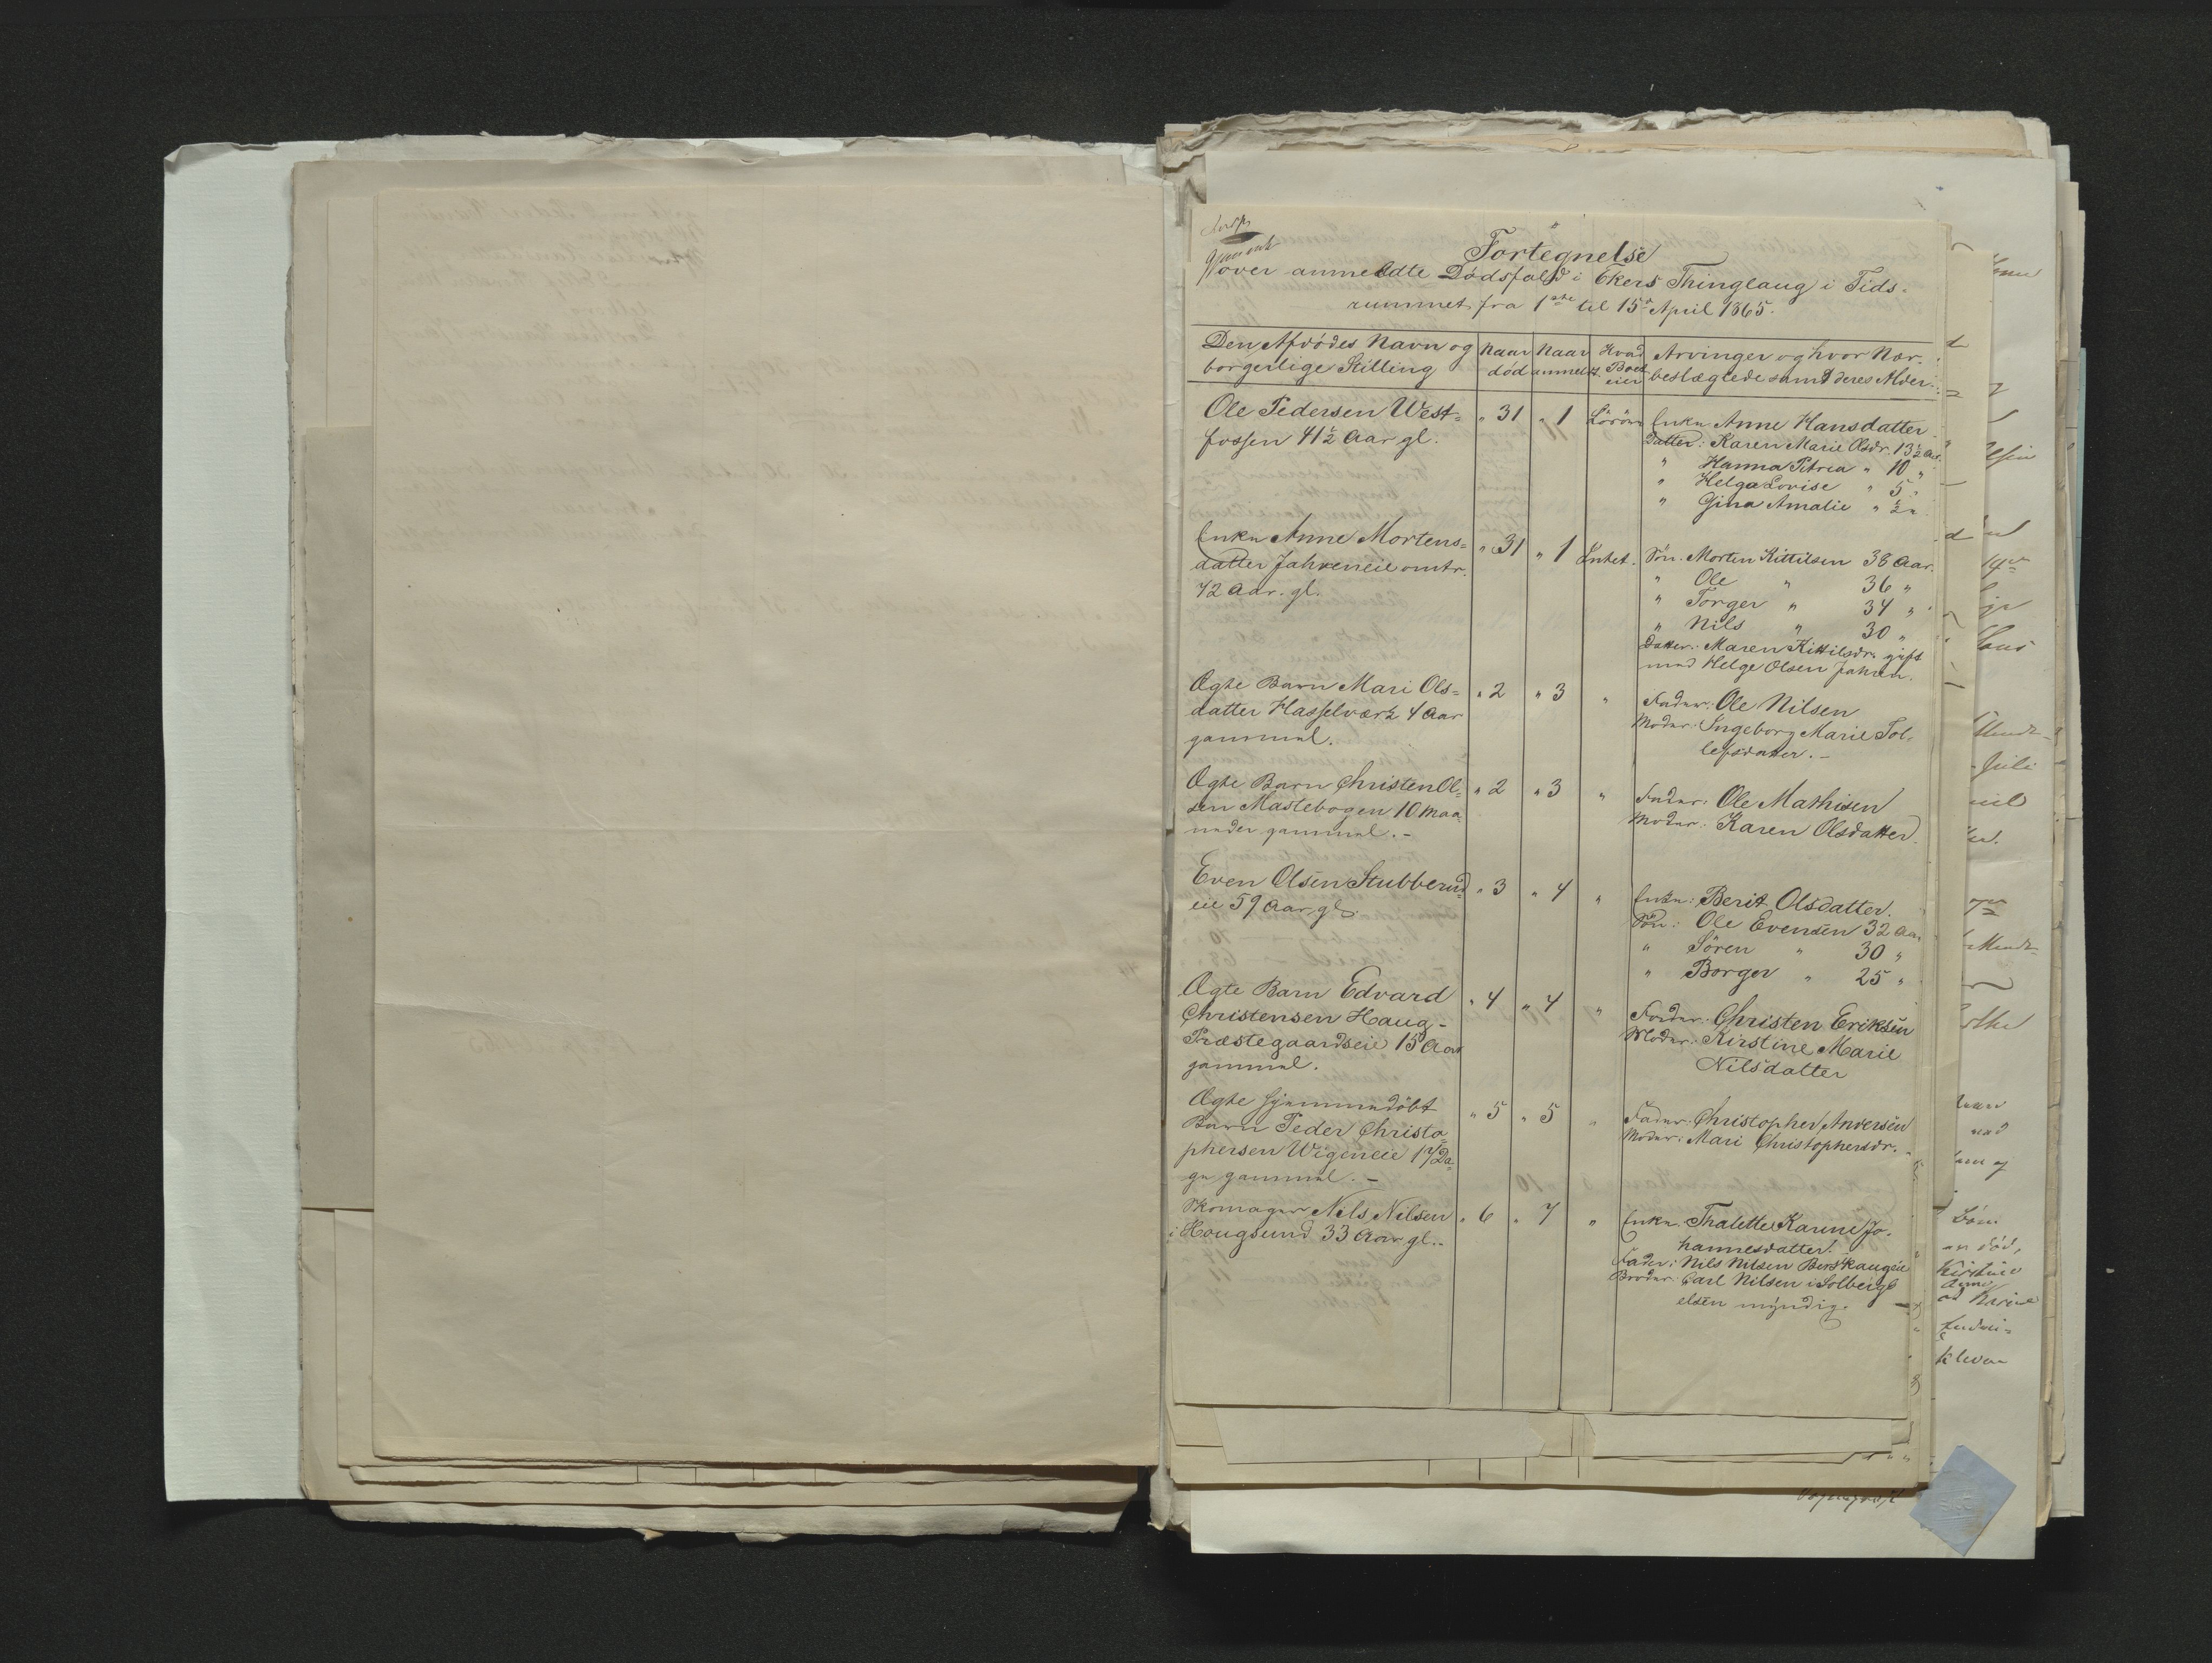 Fortegnelse
over anmeldte Dødsfald i Ekers Thinglaug i Tids-
rummet fra 1ste til 15de April 1865.
Den Afdødes Navn og borgerlige Stilling
Naar død
Naar anmeldt
Hvad Boet eier
Arvinger og hvor Nær-
beslægtede samt deres Alder
Ole Pedersen West- " 31 " 1 Enke: Anne Hansdatter
fossen 41½ Aar gl. Datter: Karen Marie Olsdr. 13½ Aar
" Hanna Petrea " 10 "
" Helga Lovise " 5 "
" Gina Amalie " ½ "
Enke Anne Mortens- " 31 " 1 Intet. Søn: Morten Kittilsen 38 Aar.
datter Jahreneie omtr. " Ole " 36 "
72 Aar. gl. " Torger " 34 "
" Nils " 30 "
Datter: Maren Kittilsdr. gift
med Helge Olsen Jahren.
Ægte Barn Mari Ols- " 2 " 3 " Fader: Ole Nilsen
datter Hasselværk 4 Aar Moder: Ingeborg Marie Tol-
gammel. lefsdatter. -
Ægte Barn Christen Ol- " 2 " 3 " Fader: Ole Mathisen
sen Mastebogen 10 Maa- Moder: Karen Olsdatter.
neder gammel. -
Even Olsen Stubberud- " 3 " 4 " Enke: Berit Olsdatter.
eie 59 Aar gl. Søn: Ole Evensen 32 Aar
" Sören " 30 "
" Borger " 25 "
Ægte Barn Edvard " 4 " 4 " Fader: Christen Eriksen
Christensen Haug- Moder: Kirstine Marie
Præstegaardseie 15 Aar Nilsdatter
gammel.
Ægte hjemmedöbt " 5 " 5 " Fader: Christopher Andersen
Barn Peder Christo- Moder: Mari Christophersdr. -
phersen Wigeneie 17 Da-
ge gammel. -
Skomager Nils Nilsen " 6 " 7 " Enke: Thalette Karine Jo-
i Hougsund 33 Aar gl. - hannesdatter.
Fader: Nils Nilsen Berskaugeie
Broder: Carl Nilsen i Solberg-
elven myndig.